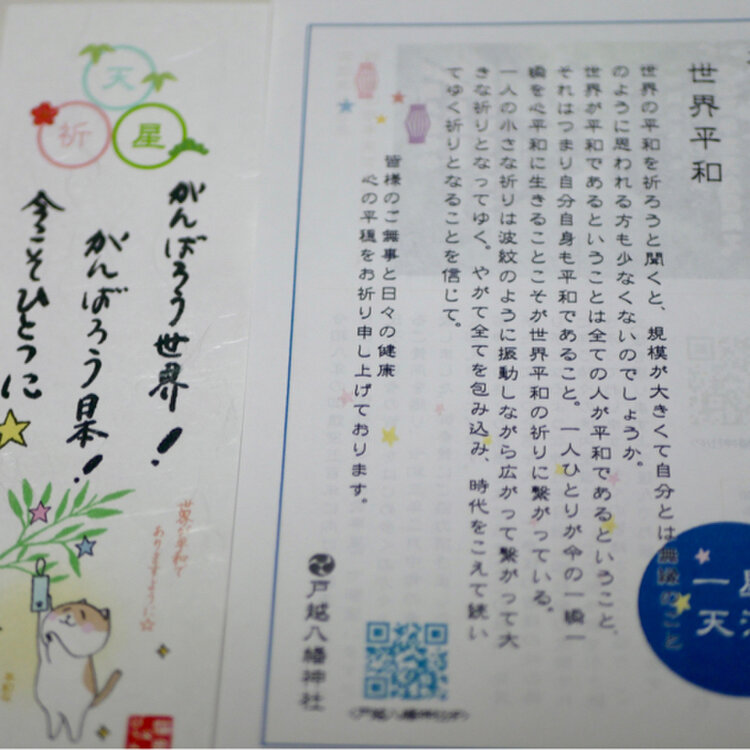 天
祈
星
がんばろう世界！
がんばろう日本！
今こそひとつに
世界が平和で
ありますように☆
世界平和
世界の平和を祈ろうと聞くと、規模が大きくて自分とは無縁のこと
のように思われる方も少なくないのでしょうか。
世界が平和であるということは全ての人が平和であるということ、
それはつまり自分自身も平和であること。一人ひとりが今の一瞬一
瞬を心平和に生きることこそが世界平和の祈りに繋がっている。
一人の小さな祈りは波紋のように振動しながら広がって繋がって大
きな祈りとなってゆく。やがて全てを包み込み、時代をこえて続い
てゆく祈りとなることを信じて。
皆様のご無事と日々の健康
心の平穏をお祈り申し上げております。
戸越八幡神社
一星
天